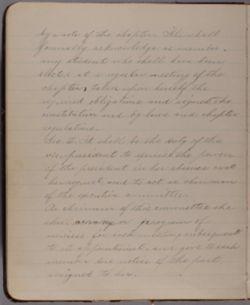 by vote of the chapter. She shall
formally acknowledge as member
any student who shall have been
elected at a regular meeting of the
chapter, taken upon herself the
required obligations and signed the
constitution and by laws and chapter
regulations.
Sec. 2. It shall be the duty of the
vice president to the power
of the president in her absence or at
her request and to act as chairman
of the executive committee.
As chairman of this committee she
shall a program of
exercises for each meeting subsequent
to its appointment and give to each
member due notice of the part
assigned to her.